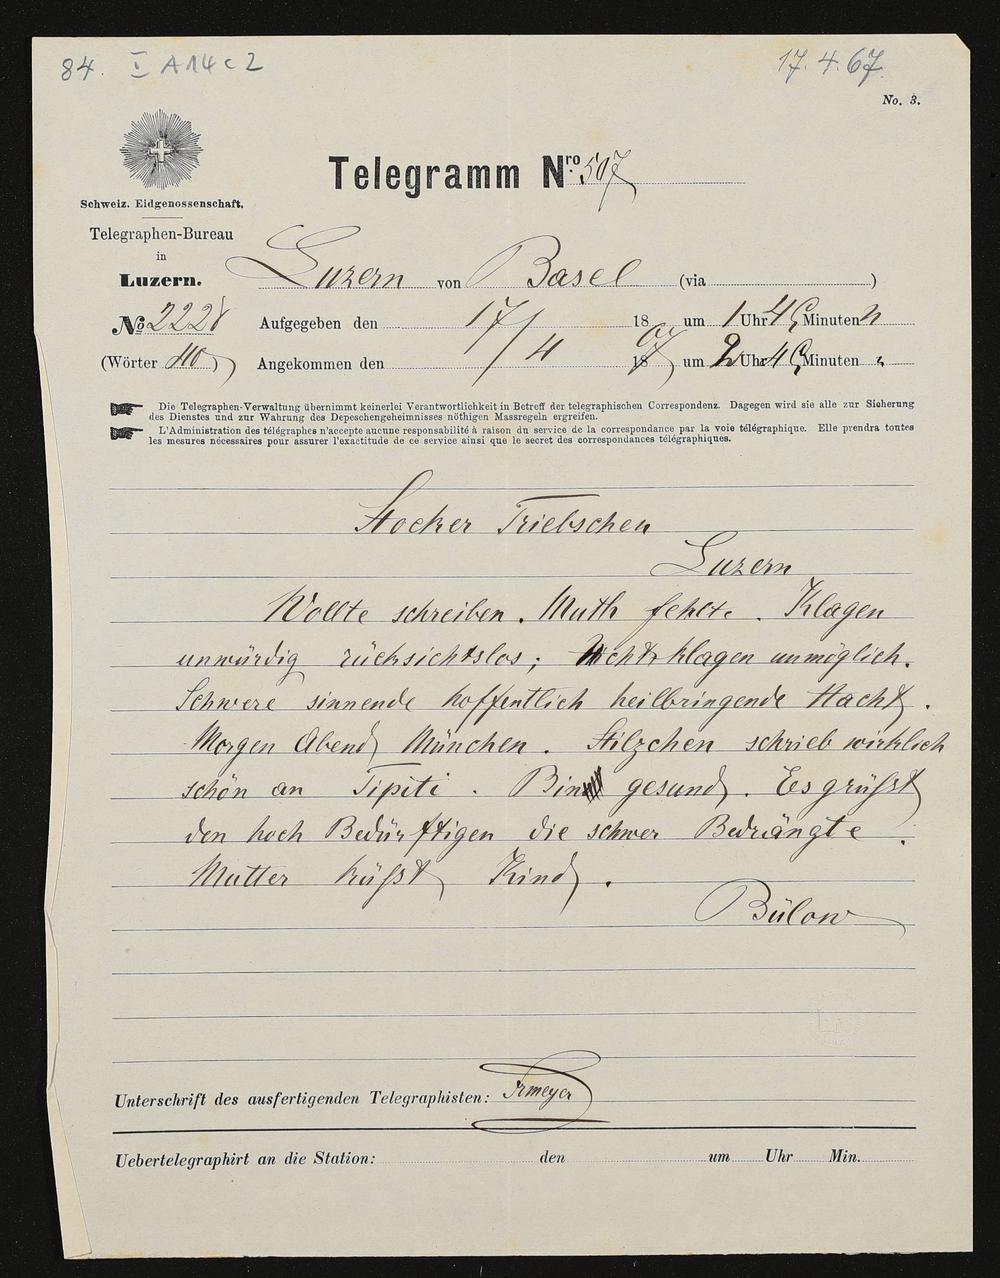 84. I A 14 c 2
17. 4. 67.
No. 3.
Telegramm Nro. 507
Schweiz. Eidgenossenschaft.
Telegraphen-Bureau
in
Luzern.
Luzern von Basel (via )
No 2228 Aufgegeben den 17/ 18 um 1 Uhr 45 Minuten
(Wörter 40) Angekommen den 4 1867 um 2 Uhr 45 Minuten "
Die Telegraphen-Verwaltung übernimmt keinerlei Verantwortlichkeit in Betreff der telegraphischen Correspondenz. Dagegen wird sie alle zur Sicherung
des Dienstes und zur Wahrung des Depeschengeheimnisses nöthigen Massregeln ergreifen.
L'Administration des télégraphes n'accepte aucune responsabilité à raison du service de la correspondance par la voie télégraphique. Elle prendra toutes
les mesures nécessaires pour assurer l'exactitude de ce service ainsi que le secret des correspondances télégraphiques.
Stocker Triebschen
Luzern
Wollte schreiben. Muth fehlte. Klagen
unwürdig rücksichtslos; Nichtklagen unmöglich.
Schwere sinnende hoffentlich heilbringende Nacht.
Morgen Abend München. Stilzchen schrieb wirklich
schön an Tipiti. Bin gesund. Es grüßt
den hoch Bedürftigen die schwer Bedrängte.
Mutter küßt Kind.
Bülow
Unterschrift des ausfertigenden Telegraphisten: Irmeyer
Uebertelegraphirt an die Station: den um Uhr Min.